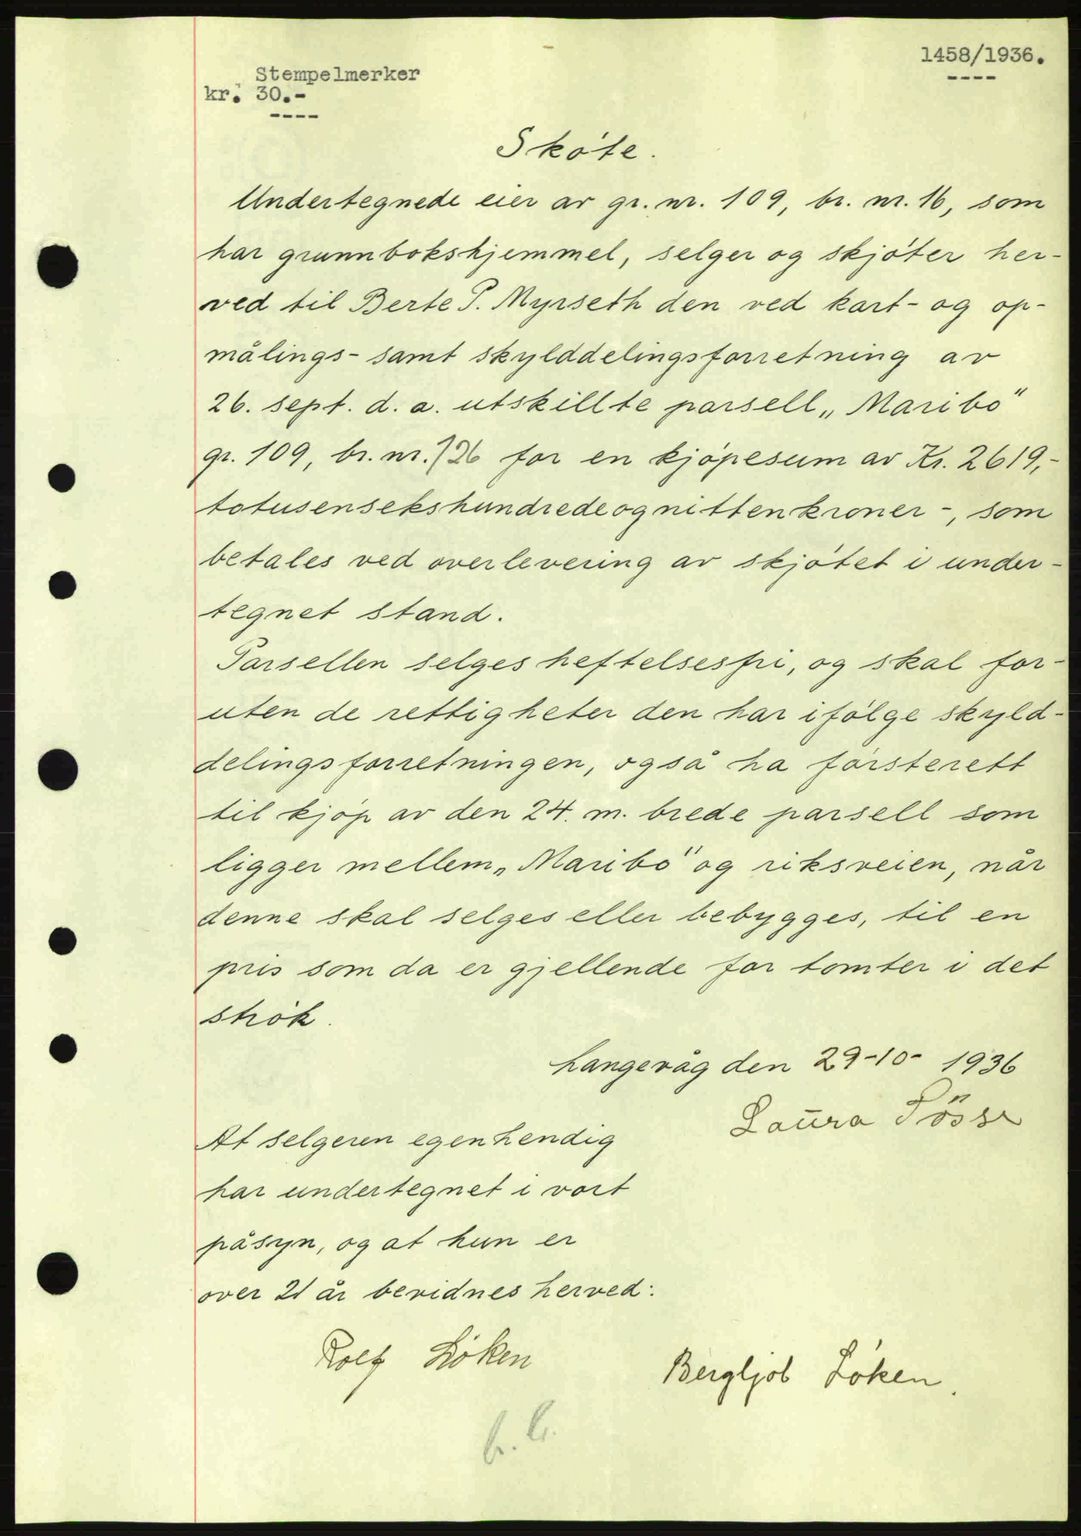 1458/1936.
----
Stempelmerker
kr. 30.-
----
Skóte.
Undertegnede eier av gr. nr. 109, br. nr. 16, som
har grunnbokshjemmel, selger og skjóter her-
ved til Berte P. Myrseth den ved kart- og op-
målings- samt skylddelingsforretning av
26. sept. d. a. utskillte parsell „Maribo"
gr. 109, br. nr. 126 for en kjópesum av Kr. 2619,-
totusensekshundredeognittenkroner-, som
betales ved overlevering av skjótet i under-
tegnet stand.
Parsellen selges heftelsesfri, og skal for-
uten de rettigheter den har ifólge skyld-
delingsforretningen, også ha fórsterett
til kjóp av den 24. m. brede parsell som
ligger mellem „Maribo" og riksveien, når
denne skal selges eller bebygges, til en
pris som da er gjellende for tomter i det
strók.
Langevåg den 29-10- 1936
Laura
At selgeren egenhendig
har undertegnet i vort
påsyn, og at hun er
over 21 år bevidnes herved:
Rolf Lóken
Bergljot Lóken.